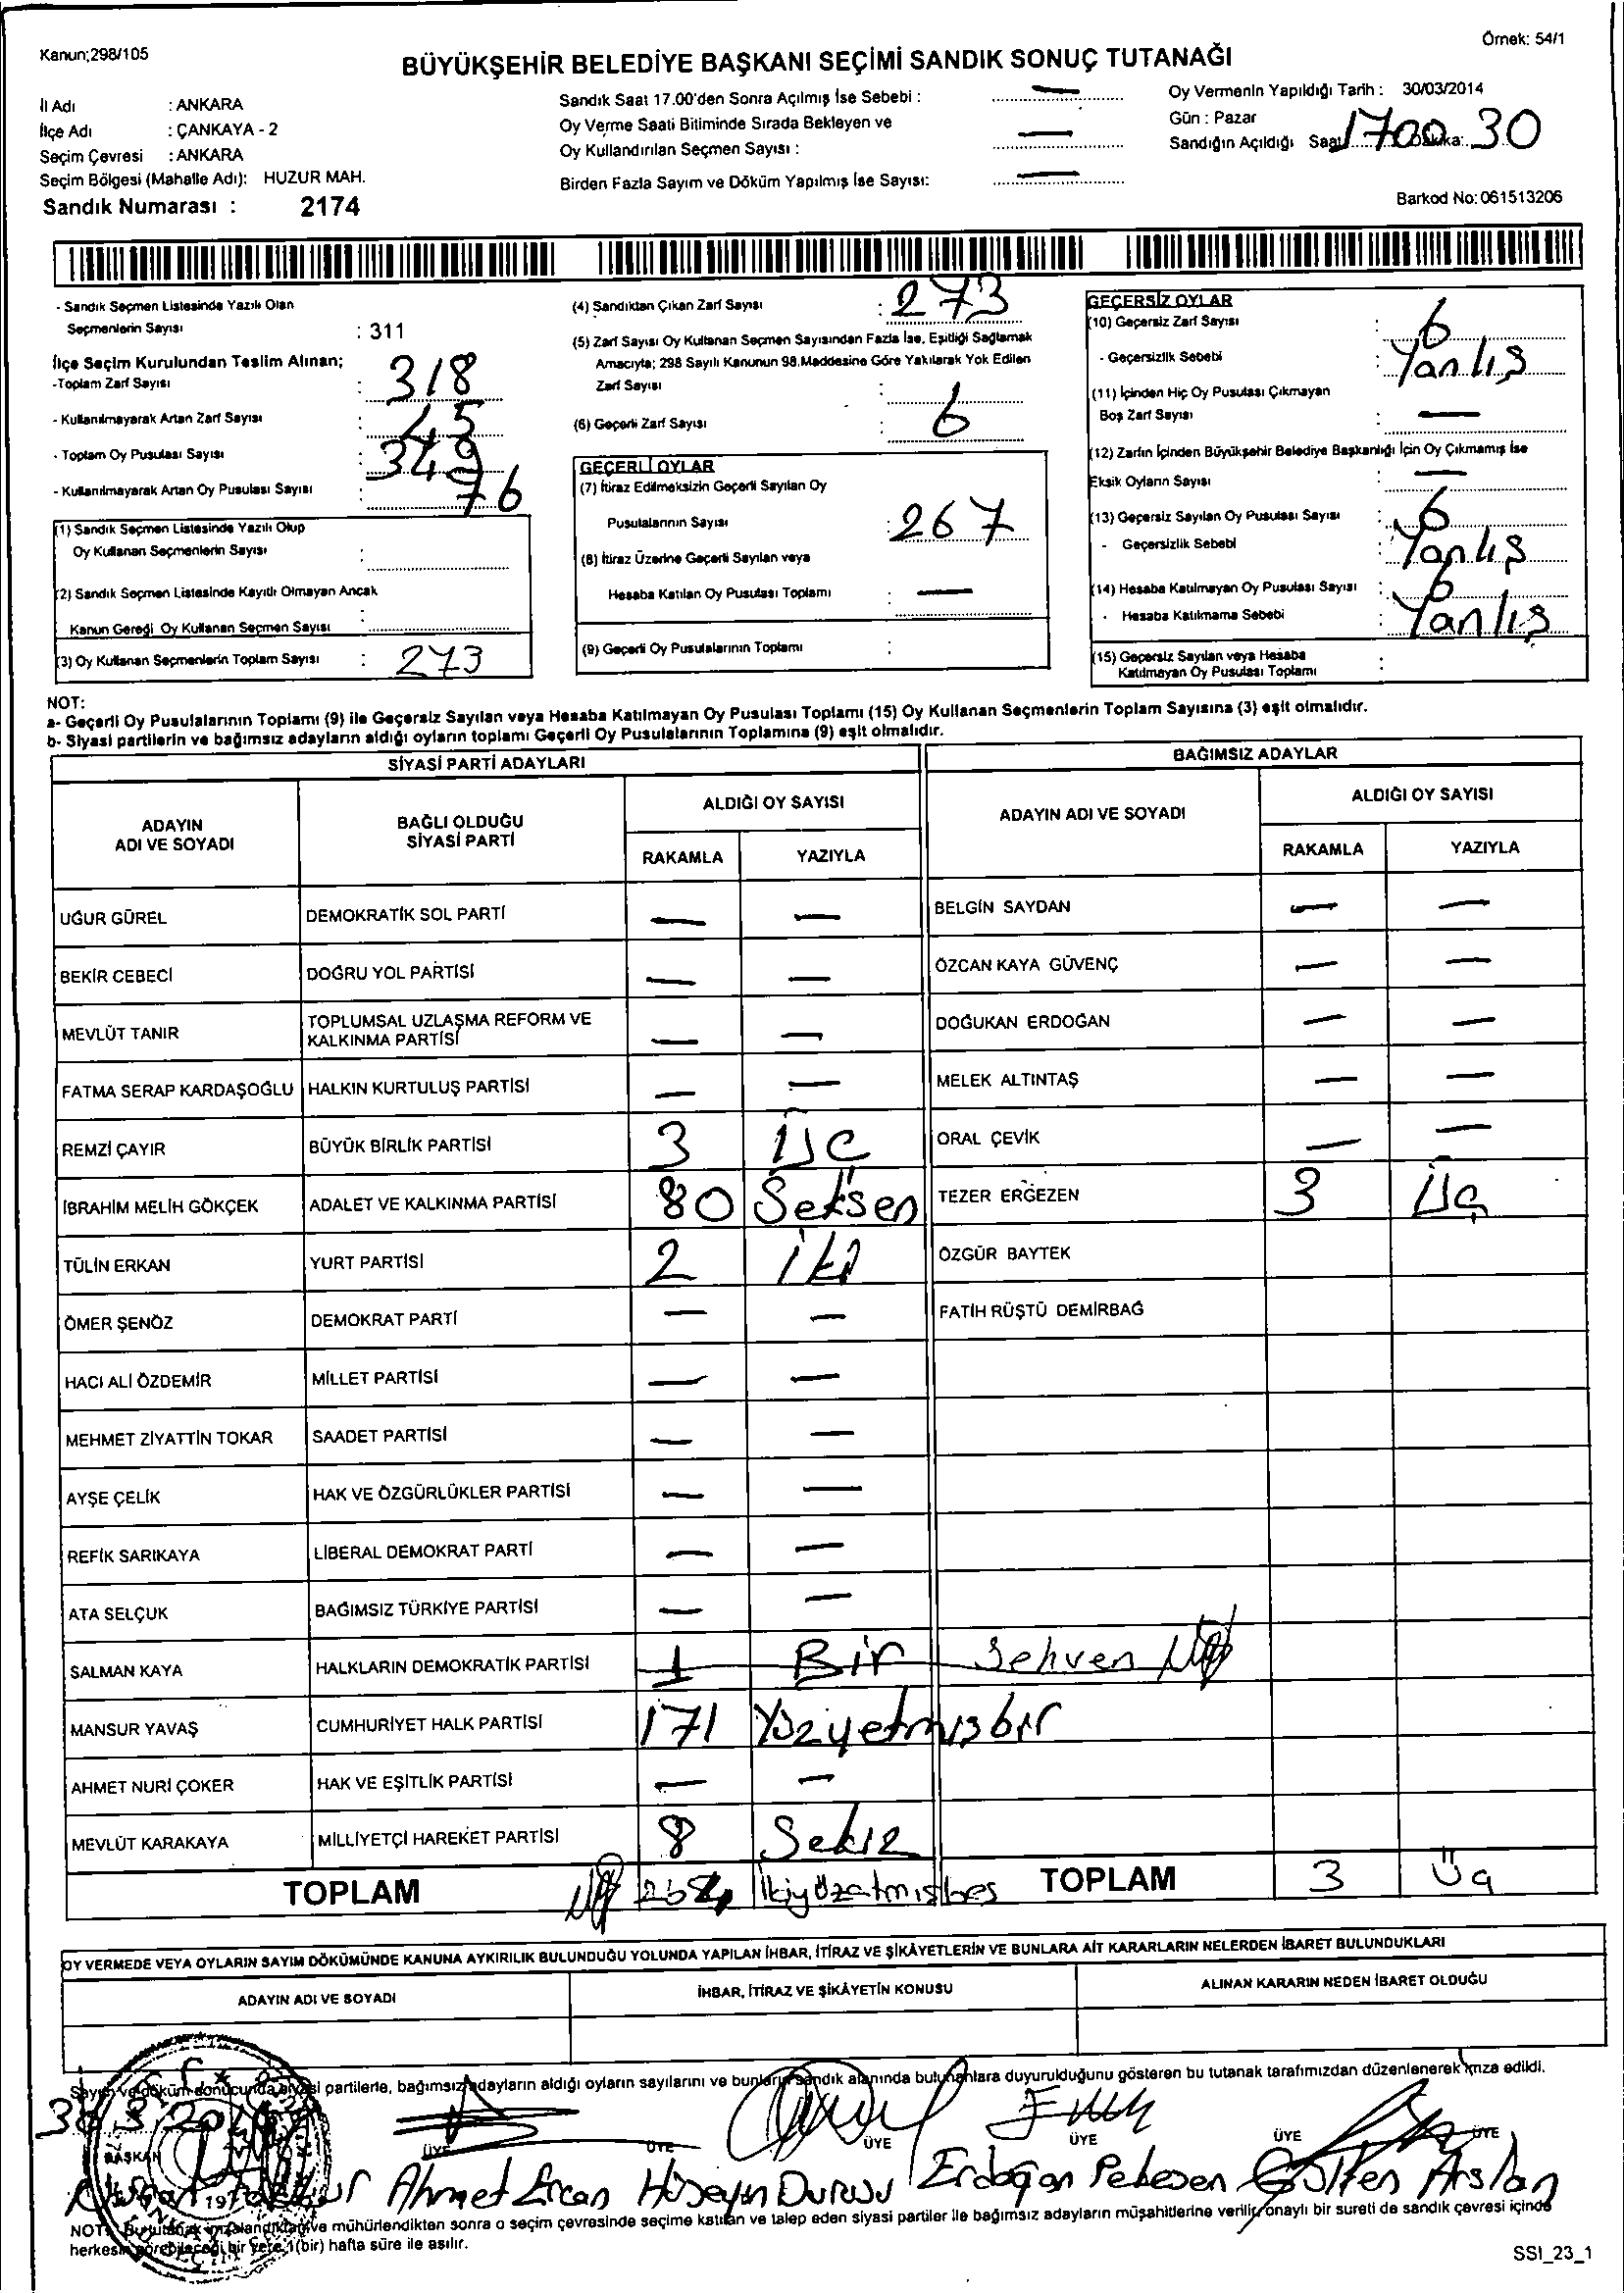 Kanun;298/105
Örnek: 54/1
BÜYÜKŞEHİR BELEDİYE BAŞKANI SEÇİMİ SANDIK SONUÇ TUTANAĞI
İl Adı : ANKARA
İlçe Adı : ÇANKAYA - 2
Seçim Çevresi : ANKARA
Seçim Bölgesi (Mahalle Adı): HUZUR MAH.
Sandık Numarası : 2174
Sandık Saat 17.00'den Sonra Açılmış İse Sebebi : —
Oy Verme Saati Bitiminde Sırada Bekleyen ve
Oy Kullandırılan Seçmen Sayısı : —
Birden Fazla Sayım ve Döküm Yapılmış İse Sayısı: —
Oy Vermenin Yapıldığı Tarih : 30/03/2014
Gün : Pazar
Sandığın Açıldığı Saat 1700 Dakika: 30
Barkod No: 061513206
- Sandık Seçmen Listesinde Yazılı Olan
Seçmenlerin Sayısı : 311
İlçe Seçim Kurulundan Teslim Alınan;
-Toplam Zarf Sayısı : 318
- Kullanılmayarak Artan Zarf Sayısı : 45
- Toplam Oy Pusulası Sayısı : 349
- Kullanılmayarak Artan Oy Pusulası Sayısı 76
(1) Sandık Seçmen Listesinde Yazılı Olup
Oy Kullanan Seçmenlerin Sayısı :
(2) Sandık Seçmen Listesinde Kayıtlı Olmayan Ancak
Kanun Gereği Oy Kullanan Seçmen Sayısı :
(3) Oy Kullanan Seçmenlerin Toplam Sayısı : 273
(4) Sandıktan Çıkan Zarf Sayısı : 273
(5) Zarf Sayısı Oy Kullanan Seçmen Sayısından Fazla İse, Eşitliği Sağlamak
Amacıyla; 298 Sayılı Kanunun 98.Maddesine Göre Yakılarak Yok Edilen
Zarf Sayısı :
(6) Geçerli Zarf Sayısı : 6
GEÇERLİ OYLAR
(7) İtiraz Edilmeksizin Geçerli Sayılan Oy
Pusulalarının Sayısı : 267
(8) İtiraz Üzerine Geçerli Sayılan veya
Hesaba Katılan Oy Pusulası Toplamı : —
(9) Geçerli Oy Pusulalarının Toplamı :
GEÇERSİZ OYLAR
(10) Geçersiz Zarf Sayısı : 6
- Geçersizlik Sebebi : Yanlış
(11) İçinden Hiç Oy Pusulası Çıkmayan
Boş Zarf Sayısı : —
(12) Zarfın İçinden Büyükşehir Belediye Başkanlığı İçin Oy Çıkmamış İse
Eksik Oyların Sayısı : —
(13) Geçersiz Sayılan Oy Pusulası Sayısı : 6
- Geçersizlik Sebebi : Yanlış
(14) Hesaba Katılmayan Oy Pusulası Sayısı : 6
- Hesaba Katılmama Sebebi : Yanlış
(15) Geçersiz Sayılan veya Hesaba
Katılmayan Oy Pusulası Toplamı :
NOT:
a- Geçerli Oy Pusulalarının Toplamı (9) ile Geçersiz Sayılan veya Hesaba Katılmayan Oy Pusulası Toplamı (15) Oy Kullanan Seçmenlerin Toplam Sayısına (3) eşit olmalıdır.
b- Siyasi partilerin ve bağımsız adayların aldığı oyların toplamı Geçerli Oy Pusulalarının Toplamına (9) eşit olmalıdır.
SİYASİ PARTİ ADAYLARI
BAĞIMSIZ ADAYLAR
ADAYIN ADI VE SOYADI
BAĞLI OLDUĞU SİYASİ PARTİ
ALDIĞI OY SAYISI
RAKAMLA YAZIYLA
ADAYIN ADI VE SOYADI
ALDIĞI OY SAYISI
RAKAMLA YAZIYLA
UĞUR GÜREL DEMOKRATİK SOL PARTİ — — BELGİN SAYDAN — —
BEKİR CEBECİ DOĞRU YOL PARTİSİ — — ÖZCAN KAYA GÜVENÇ — —
MEVLÜT TANIR TOPLUMSAL UZLAŞMA REFORM VE KALKINMA PARTİSİ — — DOĞUKAN ERDOĞAN — —
FATMA SERAP KARDAŞOĞLU HALKIN KURTULUŞ PARTİSİ — — MELEK ALTINTAŞ — —
REMZİ ÇAYIR BÜYÜK BİRLİK PARTİSİ 3 Üç ORAL ÇEVİK — —
İBRAHİM MELİH GÖKÇEK ADALET VE KALKINMA PARTİSİ 80 Seksen TEZER ERGEZEN 3 Üç
TÜLİN ERKAN YURT PARTİSİ 2 iki ÖZGÜR BAYTEK
ÖMER ŞENÖZ DEMOKRAT PARTİ — — FATİH RÜŞTÜ DEMİRBAĞ
HACI ALİ ÖZDEMİR MİLLET PARTİSİ — —
MEHMET ZİYATTİN TOKAR SAADET PARTİSİ — —
AYŞE ÇELİK HAK VE ÖZGÜRLÜKLER PARTİSİ — —
REFİK SARIKAYA LİBERAL DEMOKRAT PARTİ — —
ATA SELÇUK BAĞIMSIZ TÜRKİYE PARTİSİ — —
SALMAN KAYA HALKLARIN DEMOKRATİK PARTİSİ 1 Bir Sehven
MANSUR YAVAŞ CUMHURİYET HALK PARTİSİ 171 Yüzyetmişbir
AHMET NURİ ÇOKER HAK VE EŞİTLİK PARTİSİ — —
MEVLÜT KARAKAYA MİLLİYETÇİ HAREKET PARTİSİ 8 Sekiz
TOPLAM 264 İkiyüzatmışbeş TOPLAM 3 Üç
OY VERMEDE VEYA OYLARIN SAYIM DÖKÜMÜNDE KANUNA AYKIRILIK BULUNDUĞU YOLUNDA YAPILAN İHBAR, İTİRAZ VE ŞİKÂYETLERİN VE BUNLARA AİT KARARLARIN NELERDEN İBARET BULUNDUKLARI
ADAYIN ADI VE SOYADI İHBAR, İTİRAZ VE ŞİKÂYETİN KONUSU ALINAN KARARIN NEDEN İBARET OLDUĞU
Sayım ve döküm sonucunda siyasi partilerle, bağımsız adayların aldığı oyların sayılarını ve bunların sandık alanında bulunanlara duyurulduğunu gösteren bu tutanak tarafımızdan düzenlenerek imza edildi.
BAŞKAN ÜYE ÜYE ÜYE ÜYE ÜYE ÜYE
Ahmet Ercan Hüseyin Durusu Erdoğan Pekesen Gülten Arslan
NOT: Bu tutanak imzalandıktan ve mühürlendikten sonra o seçim çevresinde seçime katılan ve talep eden siyasi partiler ile bağımsız adayların müşahitlerine verilir, onaylı bir sureti de sandık çevresi içinde
herkesin görebileceği bir yere 1(bir) hafta süre ile asılır.
SSI_23_1